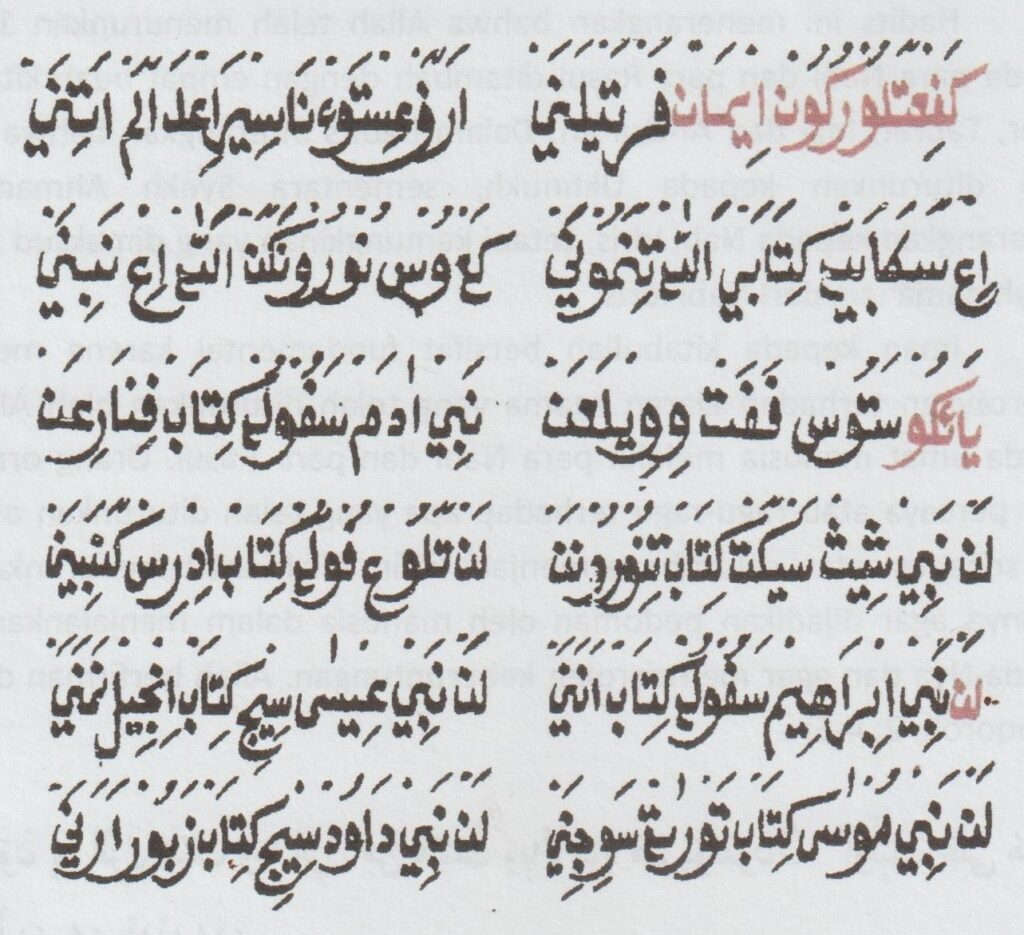 كڠ تلو ركون إيمان فرتيلني ارف عستوءناسير اعدالم اتني
اع سكابيه كتابي الله تنموني كع وس تورونكن الله اع نبيني
يائكو ستوس ففت وويلڠن نبي ادم سفوله كتاب فنارعن
لن نبي شيث سيكت كتاب تنورونن لن تلوع فوله كتاب ادريس كننني
لن نبي ابراهيم سفوله كتاب اتني لن نبي عيسى سيجي كتاب انجيل نني
لن نبي موسى كتاب تورية سوجني لن نبي داود سيجي كتاب زبور ارني